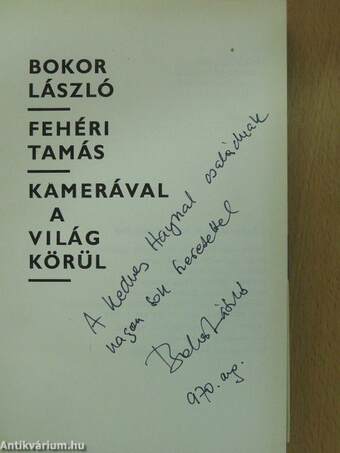 BOKOR
LÁSZLÓ
FEHÉRI
TAMÁS
KAMERÁVAL
A
VILÁG
KÖRÜL
A kedves Haynal családnak
nagyon sok szeretettel
Bokor László
970. aug.
Antikvárium.hu